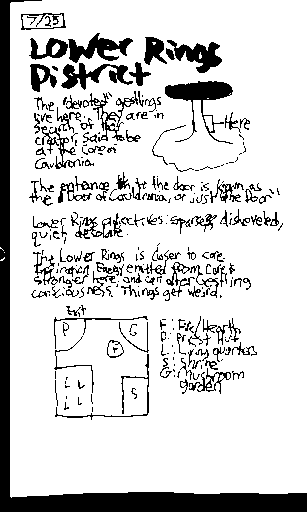 7/25
Lower Rings
District
The "devoted" gestlings
live here. They are in
search of their
creator, said to be
at the Core of
Cauldronia.
Here
The entrance to the door is known as
the "Door of Cauldronia, or just "the Door"
Lower Rings adjectives: sparse, disheveled,
quiet, desolate.
The Lower Rings is closer to core
Energy emitted from Core is
stronger here, and can alter Gestling
consciousness. Things get weird.
Exit
P G
F
L L
L L
S
F: Fire/Hearth
P: Priest Hut
L: Living quarters
S: Shrine
G: Mushroom
garden